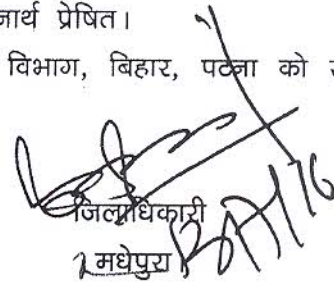 नार्थ प्रेषित।
विभाग, बिहार, पटना को
जिलाधिकारी
मधेपुरा।